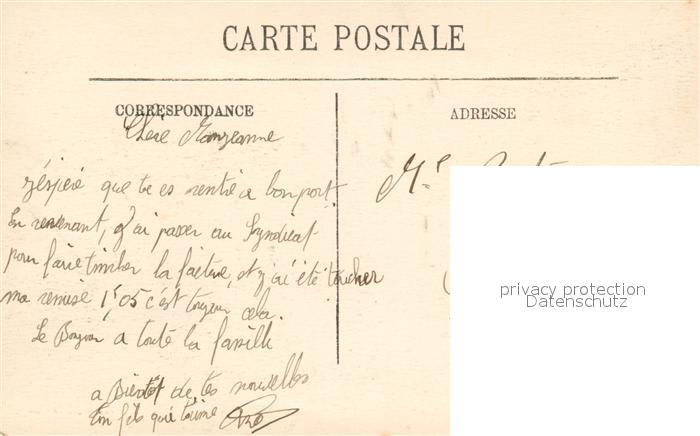 CARTE POSTALE
CORRESPONDANCE
ADRESSE
Chère
j'éspère que tu es rentré a bon port.
En revenant, j'ai passer au Syndicat
pour faire timbrer la facture, et j'ai été toucher
ma remise 1f,05 c'est toujour cela.
Le Bonjour a toute la famille
a Bientôt de tes nouvelles
Ton fils qui t'aime
privacy protection
Datenschutz